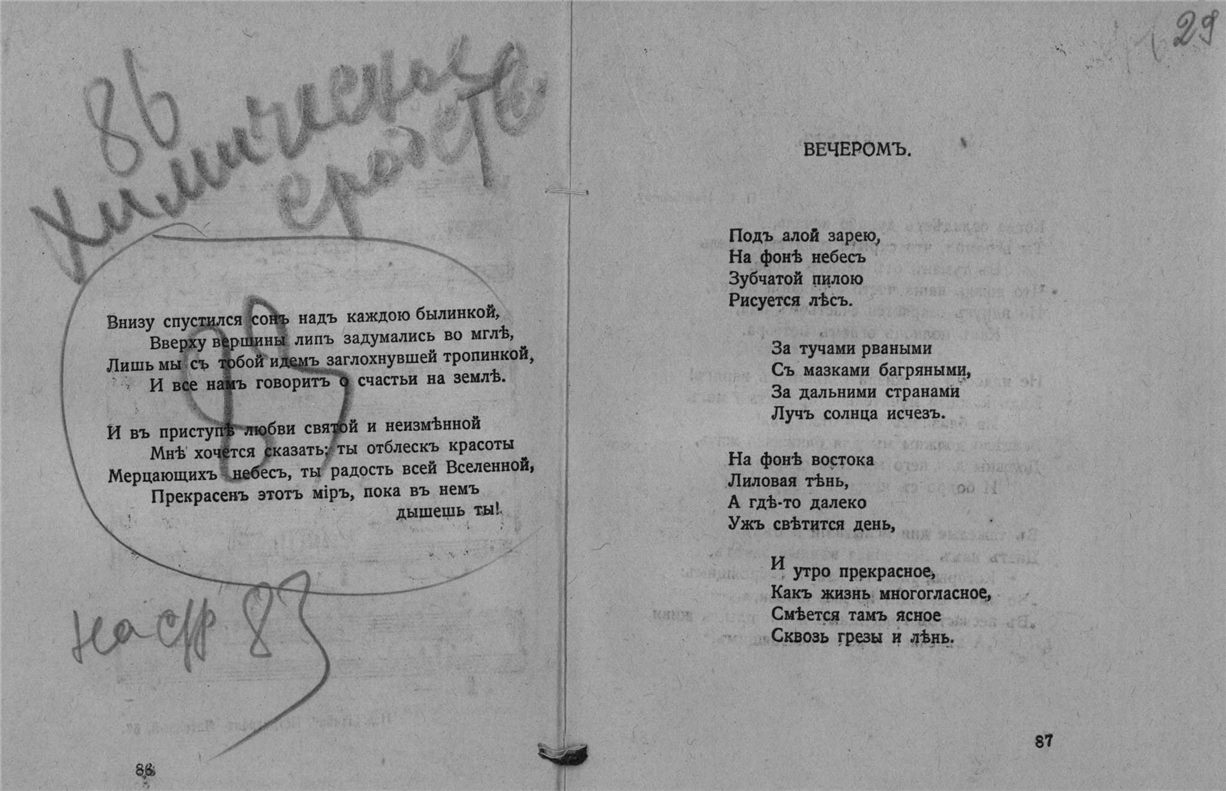 86
Химическое
сродство
Внизу спустился сонъ надъ каждою былинкой,
Вверху вершины липъ задумались во мглѣ,
Лишь мы съ тобой идемъ заглохнувшей тропинкой,
И все намъ говоритъ о счастьи на землѣ.
83
И въ приступѣ любви святой и неизмѣнной
Мнѣ хочется сказать; ты отблескъ красоты
Мерцающихъ небесъ, ты радость всей Вселенной,
Прекрасенъ этотъ міръ, пока въ немъ
дышешь ты!
на стр 83
86
29
ВЕЧЕРОМЪ.
Подъ алой зарею,
На фонѣ небесъ
Зубчатой пилою
Рисуется лѣсъ.
За тучами рваными
Съ мазками багряными,
За дальними странами
Лучъ солнца исчезъ.
На фонѣ востока
Лиловая тѣнь,
А гдѣ-то далеко
Ужъ свѣтится день,
И утро прекрасное,
Какъ жизнь многогласное,
Смѣется тамъ ясное
Сквозь грезы и лѣнь.
87